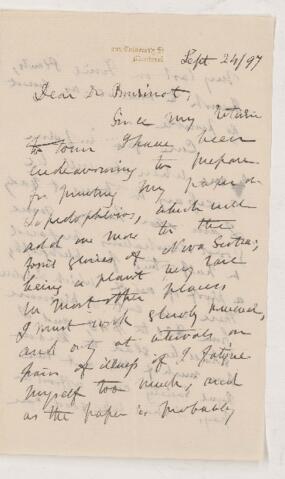 University St
Montreal
Sept 24/97
Dear Dr Bourinot,
Since my return
to Town I have been
endeavouring to prepare
for printing my paper on
Lepidophloios, which will
add one more to the
fossil glories of Nova Scotia;
being a plant very rare
in most other places.
I must work slowly however,
and only at intervals on
pain of illness if I fatigue
myself too much, and
as the paper is probably